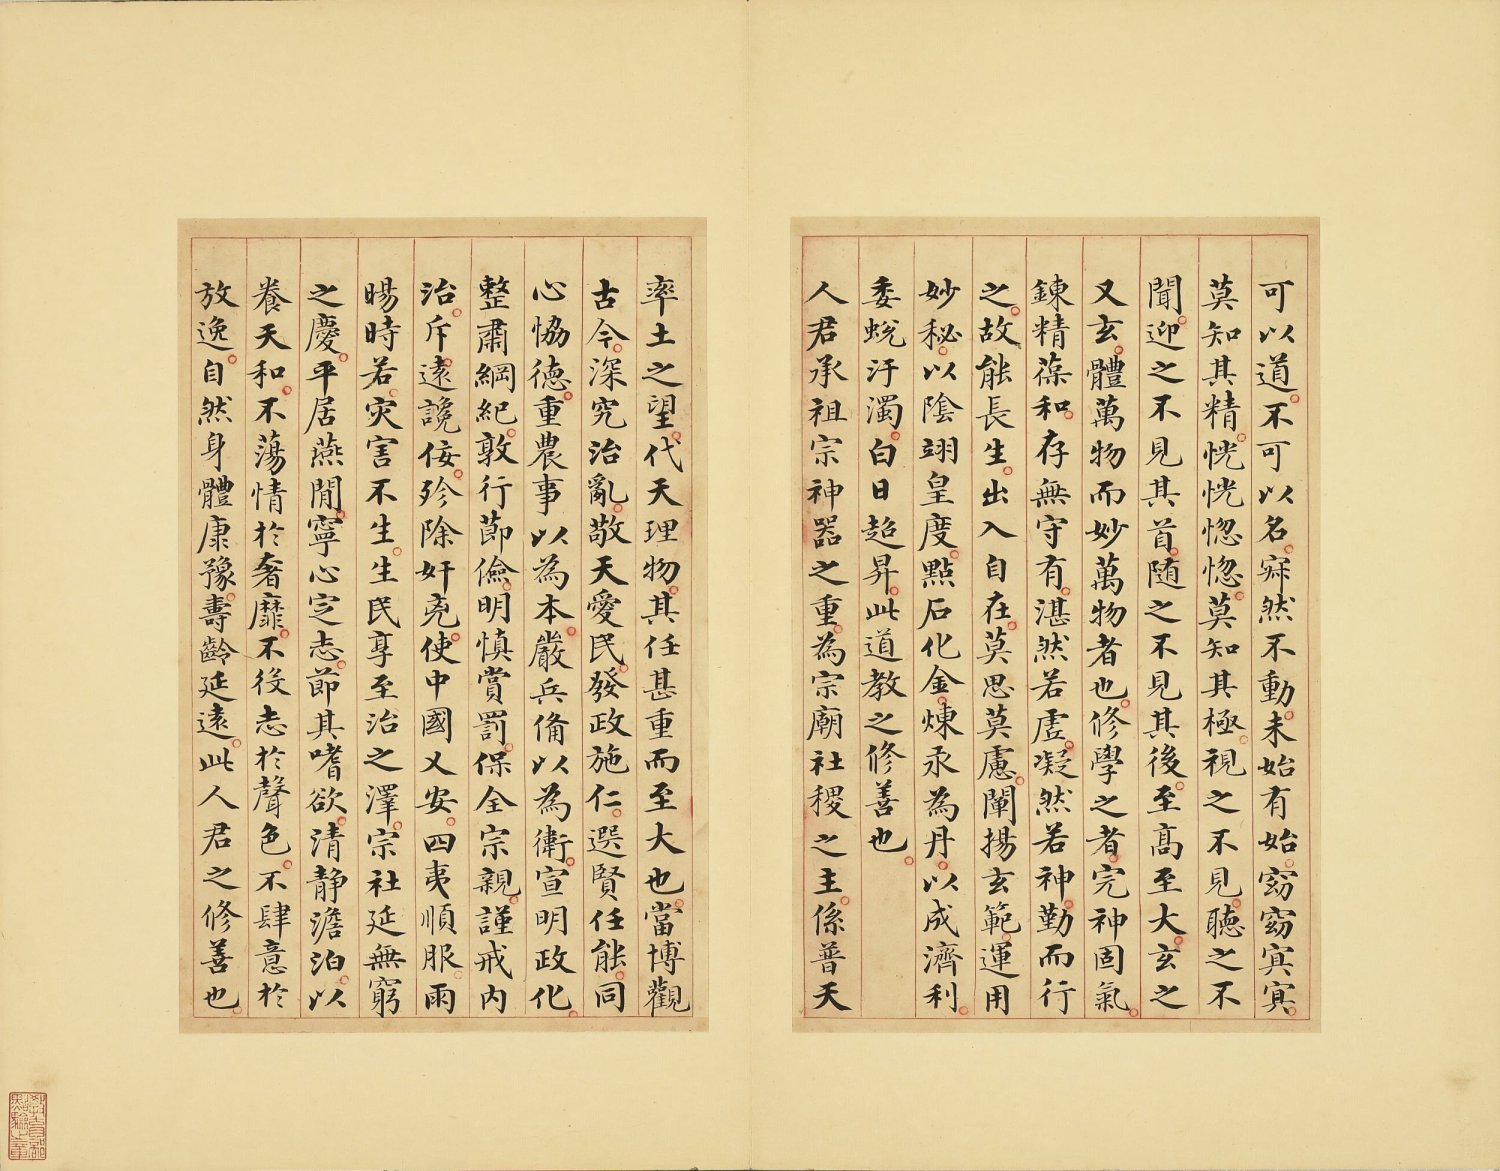 可以道不可以名寂然不動未始有始窈窈冥冥
莫知其精恍恍惚惚莫知其極視之不見聽之不
聞迎之不見其首随之不見其後至高至大玄之
又玄體萬物而妙萬物者也修學之者完神固氣
鍊精葆和存無守有湛然若虛凝然若神勤而行
之故能長生出入自在莫思莫慮闡揚玄範運用
妙秘以陰翊皇度點石化金煉汞為丹以成濟利
委蛻汙濁白日超昇此道教之修善也
人君承祖宗神器之重為宗廟社稷之主係普天
率土之望代天理物其任甚重而至大也當博觀
古今深究治亂敬天愛民發政施仁選賢任能同
心恊德重農事以為本嚴兵備以為衛宣明政化
整肅綱紀敦行節儉明慎賞罰保全宗親謹戒内
治斥遠讒佞殄除奸宄使中國乂安四夷順服雨
暘時若灾害不生生民享至治之澤宗社延無窮
之慶平居燕閒寧心定志節其嗜欲清靜澹泊以
養天和不蕩情於奢靡不役志於聲色不肆意於
放逸自然身體康豫壽齡延遠此人君之修善也